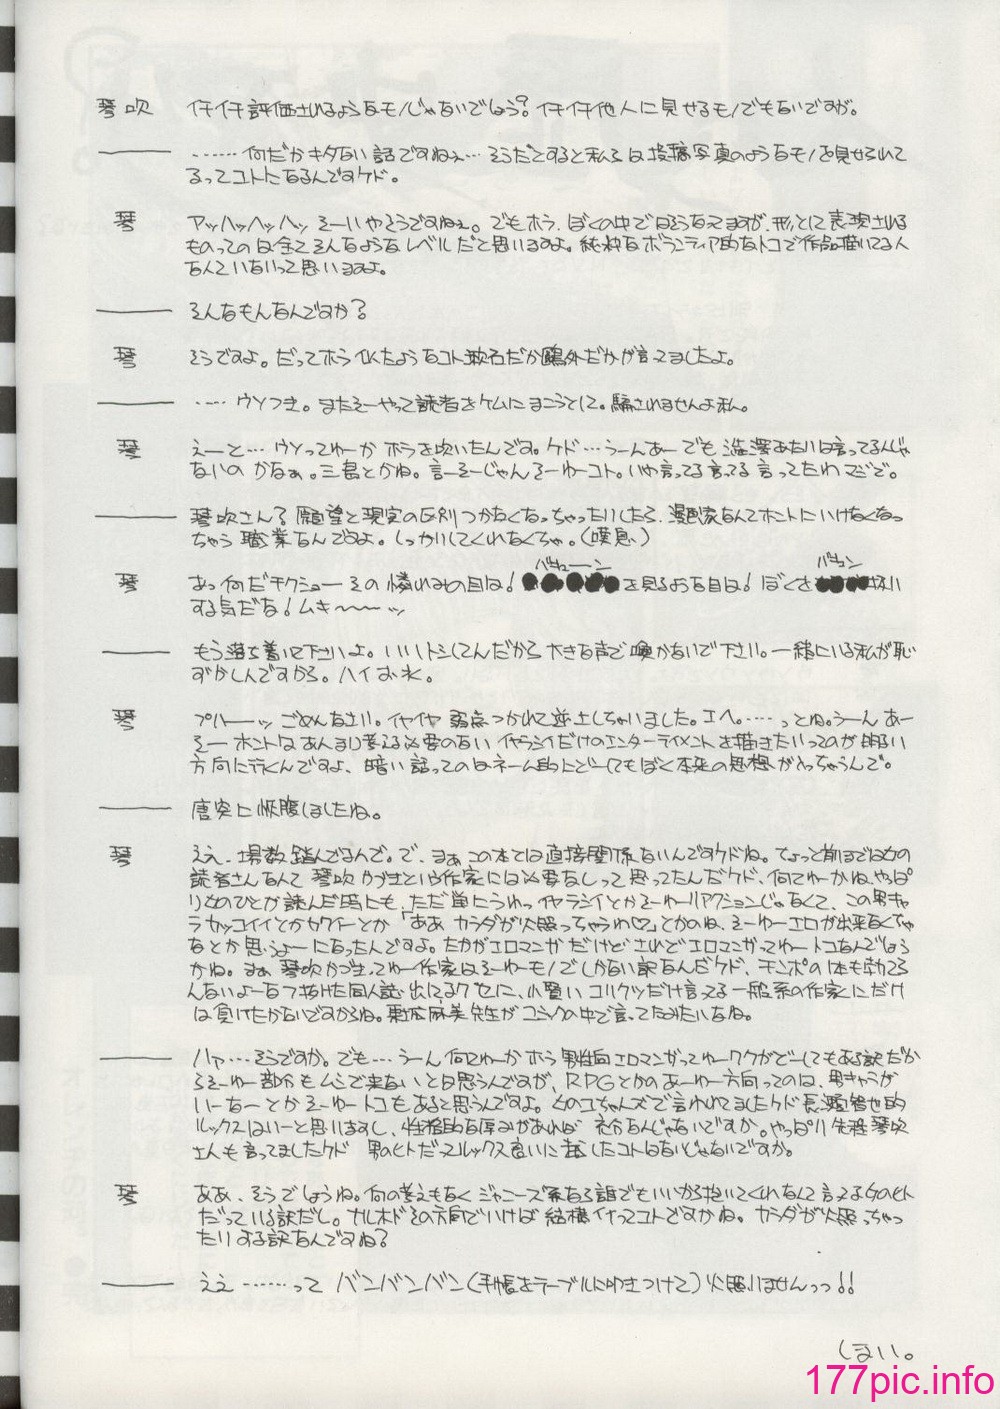 琴吹 イチイチ評価されるようなモノじゃないでしょう?イチイチ他人に見せるモノでもないですが。
――― ‥‥‥何だかキタない話ですねぇ…そうだとすると私らは投稿写真のようなモノを見せられて
るってコトになるんですケド。
琴 アッハッヘッハッ そーいやそうですねぇ。でもホラ、ぼくの中で
ものってのは全てそんなようなレベルだと思いますよ。純粋なボランティア的なトコで作品描いてる人
なんていないって思いますよ。
――― そんなもんなんですか?
琴 そうですよ。だってホラ似たようなコト漱石だか鴎外だかが言てましたよ。
――― ‥‥ウソつき。またそーやって読者をケムにまこうとして。騙されませんよ私。
琴 えーと…ウソってゆーかホラを吹いたんです。ケド…うーんあーでも澁澤あたりは言ってるんじゃ
ないのかなぁ。三島とかね。言ーそーじゃんそーゆーコト。いや言ってる言ってる言ってたわマジで。
――― 琴吹さんそろ願望と現実の区別つかなくなっちゃったりしたら、漫画家なんてホントにいけなくなっ
ちゃう職業なんですよ。しっかりしてくれなくちゃ。(嘆息)
琴 あっ何だチクショーその憐れみの目は!●●●●●を見るような目は!ぼくを●●●扱い
バキューーン バキュン
する気だな!ムキ〜〜〜ッ
――― もう落ち着いて下さいよ。いいトシしてんだから大きな声で喚かないで下さい。一緒にいる私が恥
ずかしんですから。ハイお水。
琴 プハーーッ ごめんなさい。イヤイヤ弱点つかれて逆上しちゃいました。エヘ。‥‥‥ってね。うーんあー
そーホントはあんまり考える必要のないイヤラシイだけのエンターテイメントを描きたいってのが明るい
方向に行くんですよ、暗い話ってのはネーム的にどーしてもぼく本来の思想が入っちゃうんで。
――― 唐突に恢復しましたね。
琴 ええ、場数踏んでますんで。で、まぁこの本では直接関係ないんですケドね。ちょっと前までは女の
読者さんなんて琴吹かづきという作家には必要なしって思ってたんだケド、何てゆーかね、やっぱ
り女のひとが読んだ時にも、ただ単にうわっイヤラシイとかそーゆーリアクションじゃなくて、この男キャ
ラカッコイイとかカワイーとか「ああ カラダが火照っちゃうわ♡」とかのね、そーゆーエロが出来なくちゃ
なとか思うよーになったんですよ。たかがエロマンガだけどされどエロマンガってゆートコなんでしょう
かね。まぁ琴吹かづきってゆー作家はそーゆーモノでしかない訳なんだケド、チンポの1本も勃てら
んないよーなフ抜けた同人誌出してるクセに、小賢いコリクツだけ言える一般系の作家にだけ
は負けたかないですからね。
――― ハァ…そうですか。でも…うーん何てゆーかホラ男性向エロマンガってゆーワクがどーしてもある訳だか
らそーゆー部分もムシ出来ないとは思うんですが、RPGとかのあーゆー方向ってのは、男キャラが
いーなーとかそーゆートコもあると思うんですよ。
ルックスはいーと思いますし、性格的な厚みがあれば充分なんじゃないですか。やっぱり先程琴吹
さんも言ってましたケド 男のヒトだってルックス良いに越したコトはないじゃないですか。
琴 ああ、そうでしょうね。何の考えもなくジャニーズ系なら誰でもいいから抱いてくれなんて言えよな女のヒト
だっている訳だし。ナルホドその方向でいけば結構イケってコトですかね。カラダが火照っちゃっ
たりする訳なんですね?
――― ええ‥‥‥って バンバンバン(手帳をテーブルに叩きつけて)火照りませんっっ!!
しまい。
177pic.info